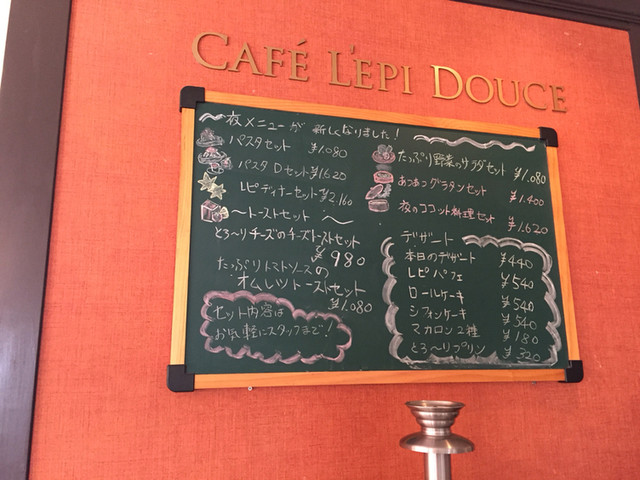 CAFÉ L'EPI DOUCE
〜夜メニューが 新しくなりました!
パスタセット ¥1.080
パスタDセット ¥1.620
レピディナーセット ¥2.160
〜トーストセット〜
とろ〜りチーズのチーズトーストセット
¥980
たっぷりトマトソースの
オムレツトーストセット
¥1.080
セット内容は
お気軽にスタッフまで!
たっぷり野菜のサラダセット ¥1.080
あつあつグラタンセット ¥1.400
夜のココット料理セット ¥1.620
デザート
本日のデザート ¥440
レピパフェ ¥540
ロールケーキ ¥540
シフォンケーキ ¥540
マカロン2種 ¥180
とろ〜りプリン ¥320